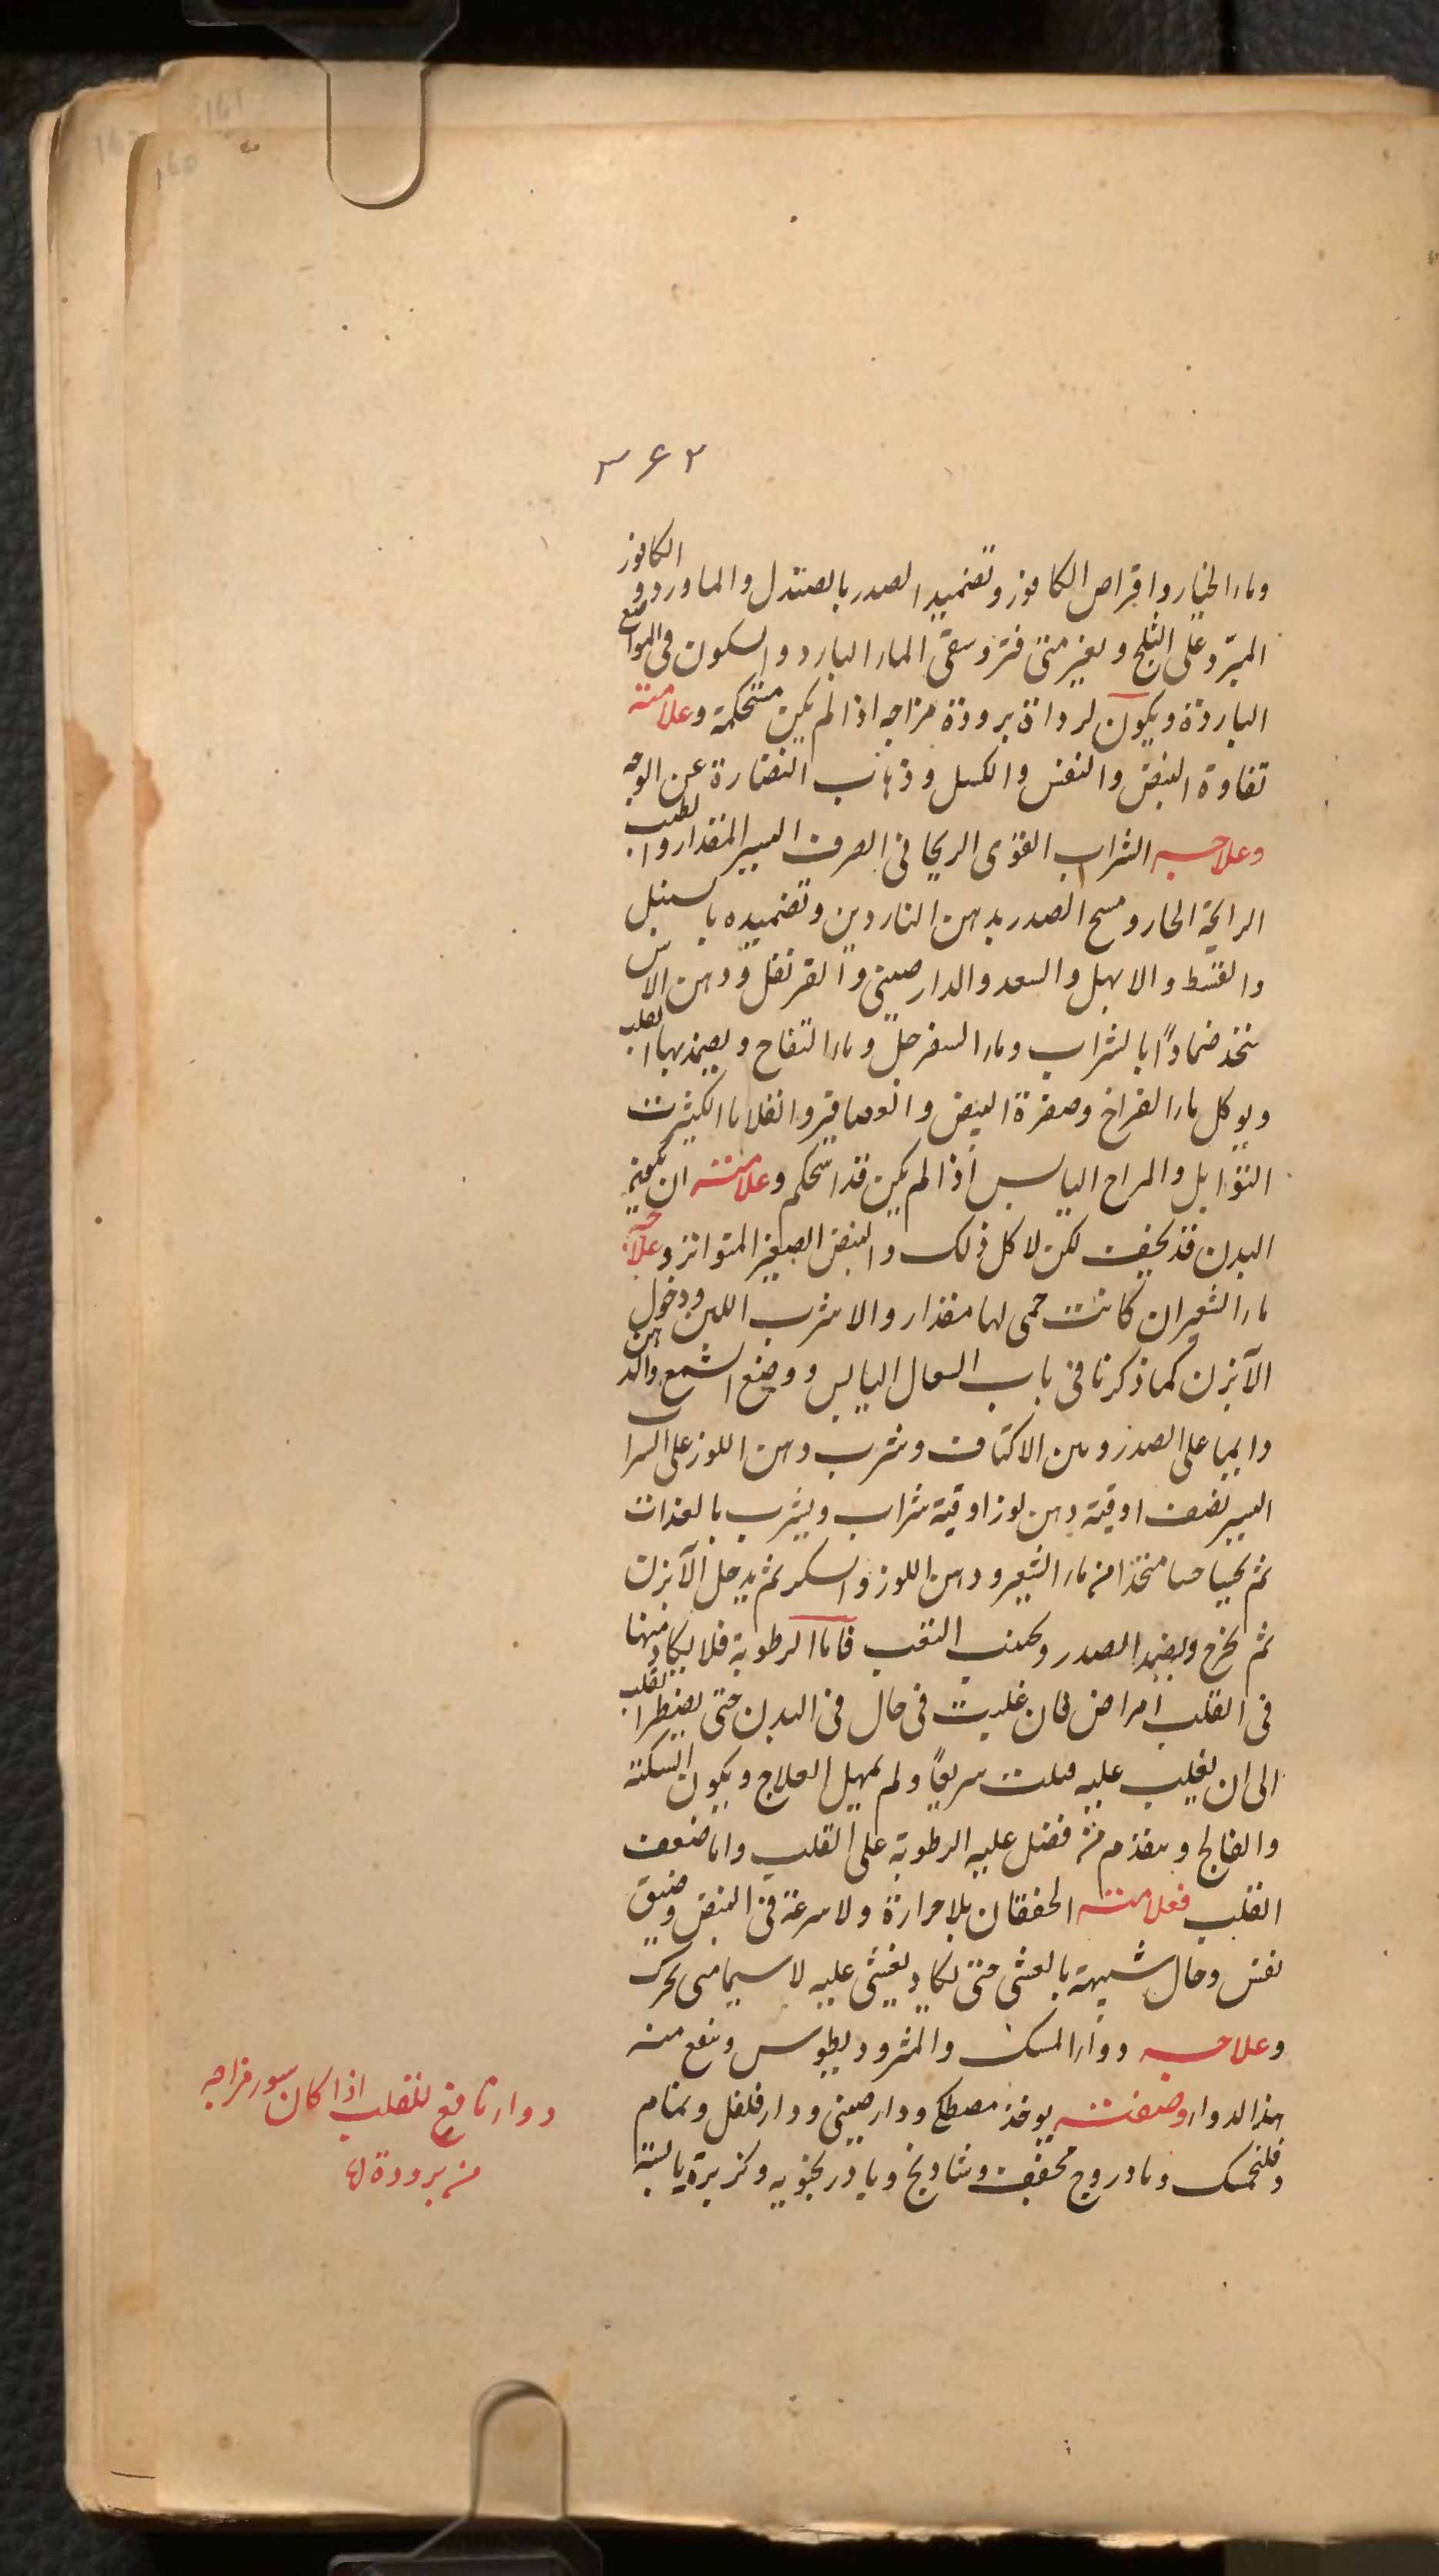 ٣٤٢
وماء الخيار واقراص الكافور وتضميد الصدر بالصندل والماورد والكافور
المبرّد على الثلج ويغير متى فتر وسقى الماء البارد والسكون فى المواضع
الباردة ويكون لرداة برودة مزاجه اذا لم يكن مستحكمة وعلامته
تفاوة النبض والنفس والكسل وذهاب النضارة عن الوجه
وعلاجه الشراب القوى الريحانى الصرف اليسير المقدار والطيب
الرايحة الحار ومسح الصدر بدهن الناردين وتضميده بالسنبل
والقسط والابهل والسعد والدارصينى والقرنفل ودهن الاس
يتخذ ضمادًا بالشراب وماء السفرجل وماء التفاح ويضمد بها القلب
ويوكل ماء الفراخ وصفرة البيض والعصافير والقلايا الكثيرت
التوابل والمزاج اليابس اذا لم يكن قد استحكم وعلامته ان يكون
البدن قد يخيف لكن لا كل ذلك والنبض الصغير المتواتر وعلاجه
ماء الشعير ان كانت حمى لها مقدار والا شرب اللبن ودخول
الآبزن كما ذكرنا فى باب السعال اليابس ووضع الشمع والدهن
دايما على الصدر وبين الاكتاف وشرب دهن اللوز على الشراب
اليسير نصف اوقية دهن لوز اوقية شراب ويشرب بالغدات
ثم يحسا حسا متخذا من ماء الشعير ودهن اللوز والسكر ثم يدخل الآبزن
ثم يخرج ويضمد الصدر ويجنب التعب فاما الرطوبة فلا يكاد منها
فى القلب امراض فان غلبت فى حال فى البدن حتى يضطر القلب
الى ان يغلب عليه قتلت سريعًا ولم يمهل العلاج ويكون السكتة
والفالج ويتقدم منه فضل عليه الرطوبة على القلب واما ضعف
القلب فعلامته الخفقان بلا حرارة ولا سرعة فى النبض وضيق
نفس وحال شبيهة بالغشى حتى يكاد يغشى عليه لا سيما متى تحرك
وعلاجه دواء المسك والمثروديطوس وينفع منه
هذا الدواء وصفته يوخذ مصطكى ودارصينى ودارفلفل ونمام
وفلنجمسك وبادروج مجفف وشادنج وبادرنجبويه وكزبرة يابسة
دواء نافع للقلب اذا كان سوء مزاجه
من برودة لها